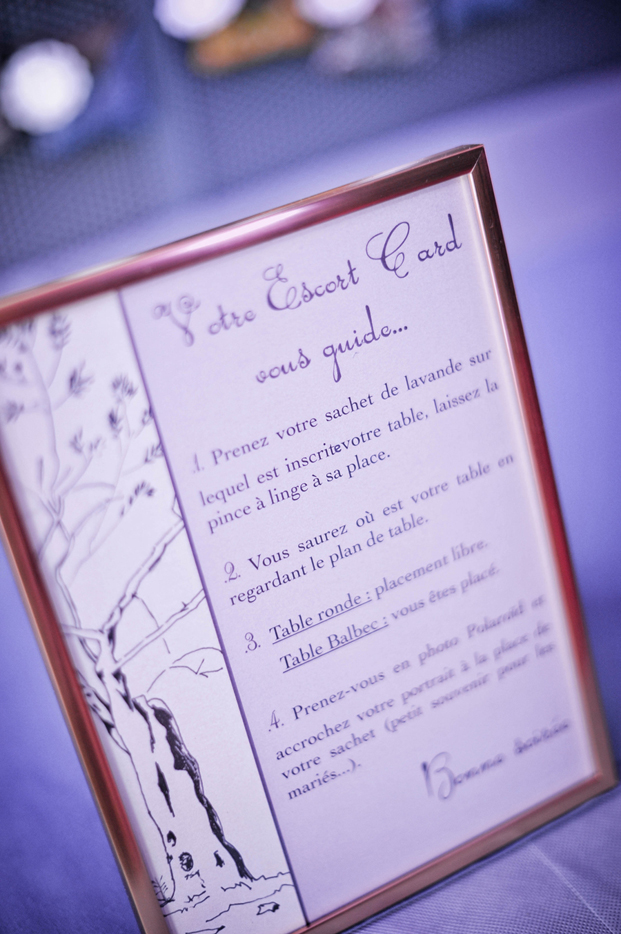 Votre Escort Card
vous guide...
.1. Prenez votre sachet de lavande sur
lequel est inscritevotre table, laissez la
pince à linge à sa place.
.2. Vous saurez où est votre table en
regardant le plan de table.
.3. Table ronde : placement libre.
Table Balbec : vous êtes placé.
.4. Prenez-vous en photo Polaroïd et
accrochez votre portrait à la place de
votre sachet (petit souvenir pour les
mariés...).
Bonne soirée